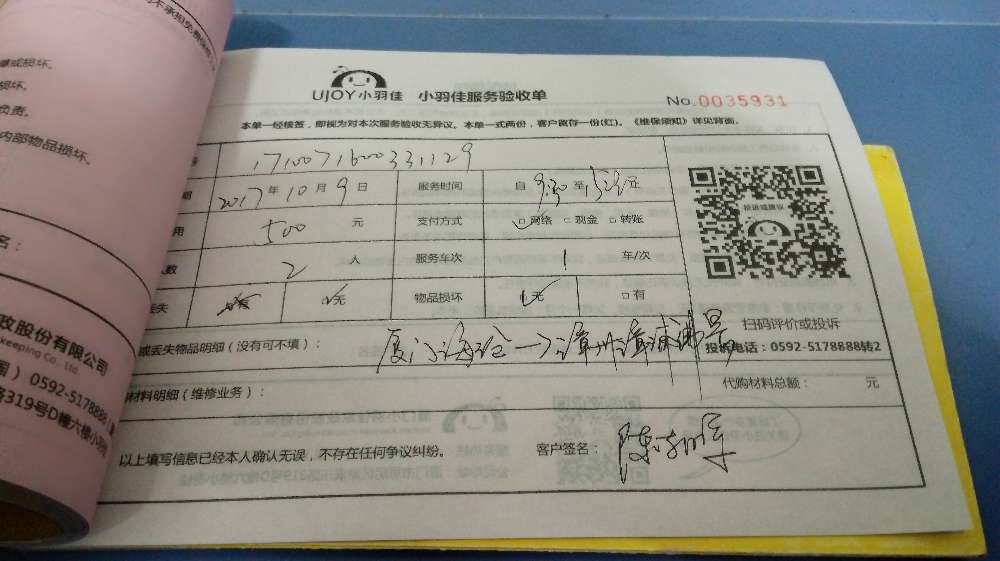 不承担免费保
爆或损坏。
损坏。
负责。
内部物品损坏。
名：
政股份有限公司
keeping Co., Ltd.
0592-5178888
路319号D幢六楼小羽佳
UJOY小羽佳 小羽佳服务验收单
No.0035931
本单一经核签，即视为对本次服务验收无异议。本单一式两份，客户留存一份(红)。《维保须知》详见背面。
号 1710071600331129
期 2017年10月9日 服务时间 自 9:30 至
用 500 元 支付方式 □网络 □现金 □转账
人数 2 人 服务车次 1 车/次
丢失 □有 □无 物品损坏 □无 □有
投诉或建议
扫码评价或投诉
投诉电话：0592-5178888转2
或丢失物品明细（没有可不填）： 厦门海沧→漳州漳浦
材料明细（维修业务）： 代购材料总额： 元
以上填写信息已经本人确认无误，不存在任何争议纠纷。 客户签名： 陈